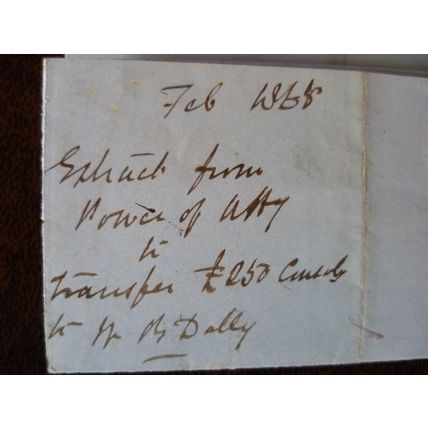 Feb 1868
Extract from
Power of Atty
to
transfer £250 Consols
to Dally